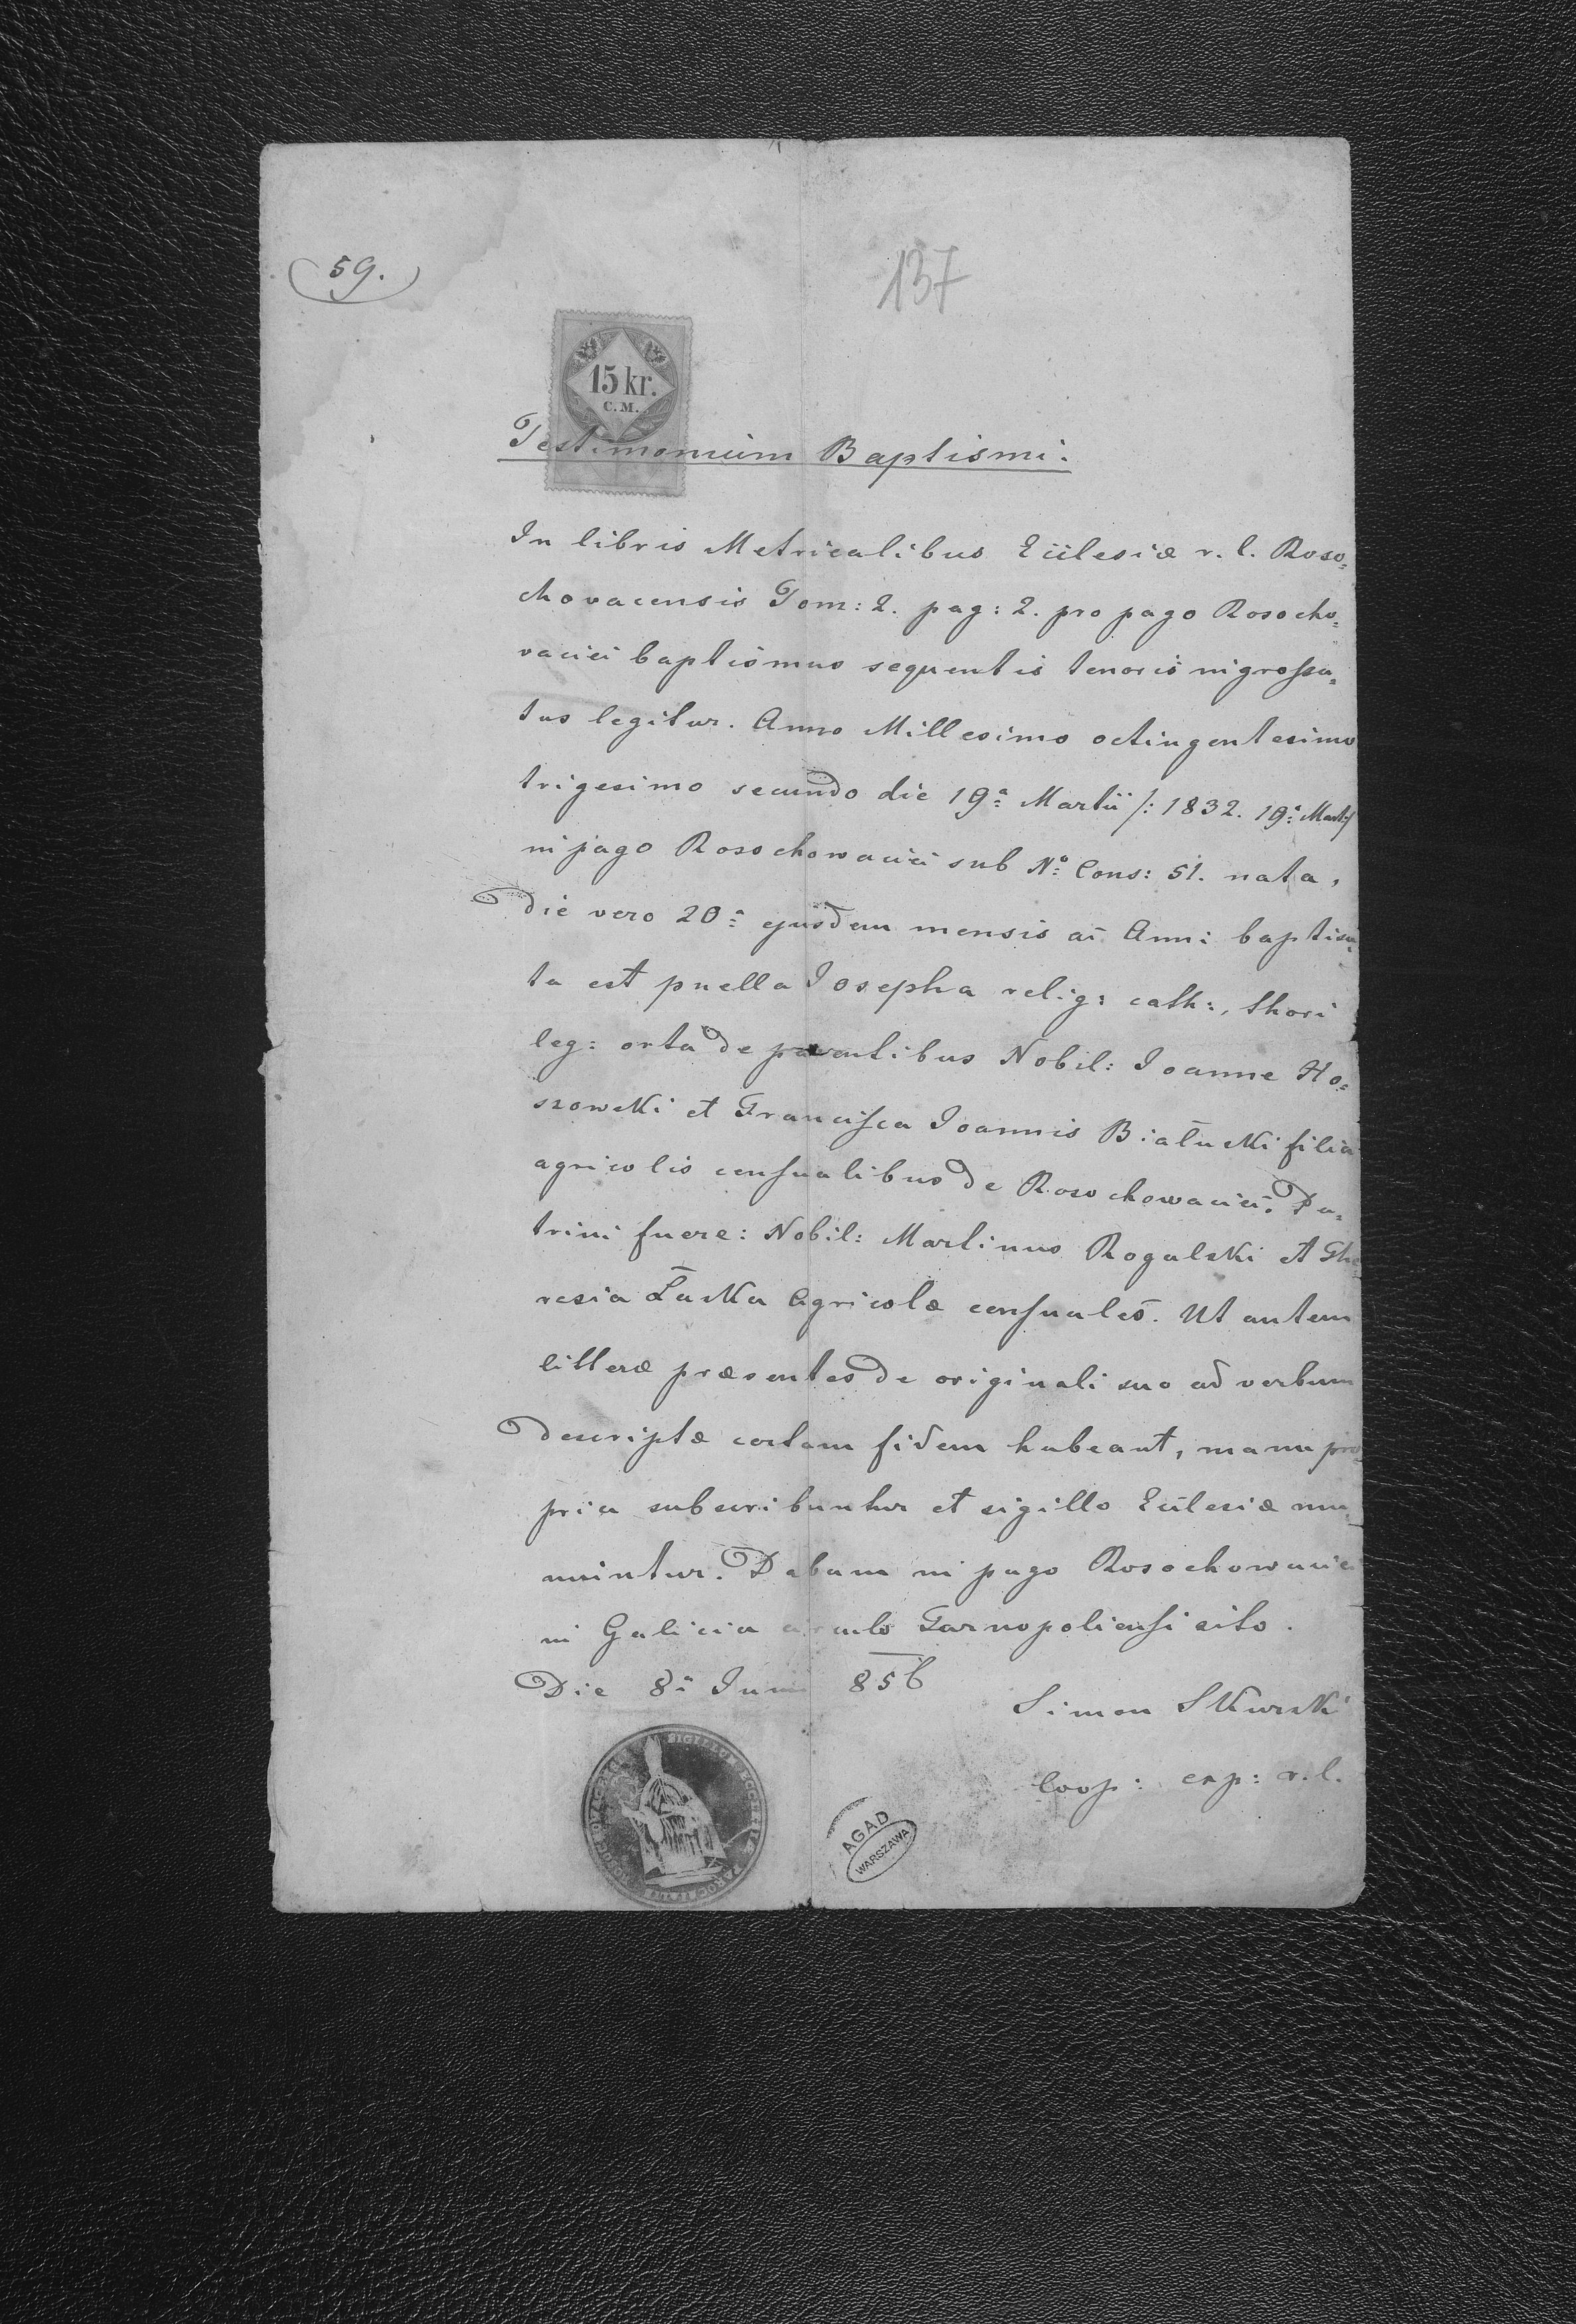 59.
137
15 kr.
C.M.
Testimonium Baptismi:
In libris Metricalibus Ecclesiæ r. l. Roso=
chovacensis Tom: 2. pag: 2. pro pago Rosocho=
vacici baptismus sequentis tenoris ingrossa=
tus legitur. Anno Millesimo octingentesimo
trigesimo secundo die 19ª Martii /: 1832. 19ª Marti/
in pago Rosochowacici sub Nº Cons: 51. nata,
die vero 20ª ejusdem mensis ac Anni baptisa=
ta est puella Josepha relig: cath:, thori
leg: orta de parentibus Nobil: Joanne Ho=
szowski et Francisca Joannis Białuski filia
agricolis censualibus de Rosochowacici. Pa=
trini fuere: Nobil: Martinus Rogalski et The=
resia Łaska Agricolæ censuales. Ut autem
litteræ præsentes de originali suo ad verbum
descriptæ certam fidem habeant, manu pro=
pria subscribuntur et sigillo Ecclesiæ mu=
niuntur. Dabam in pago Rosochowacici
in Galicia circulo Tarnopoliensi sito.
Die 8ª Juni 856
Simon Skurski
Coop: exp: r. l.
SIGILLUM ECCLESIÆ
AGAD
WARSZAWA